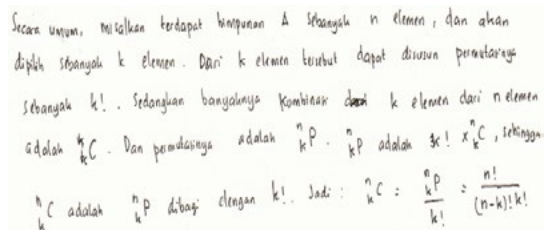 Secara umum, misalkan terdapat himpunan A sebanyak n elemen, dan akan
dipilih sebanyak k elemen. Dari k elemen tersebut dapat disusun permutasinya
sebanyak k!. Sedangkan banyaknya kombinasi k elemen dari n elemen
adalah ⁿₖC. Dan permutasinya adalah ⁿₖP. ⁿₖP adalah k! x ⁿₖC, sehingga
ⁿₖC adalah ⁿₖP dibagi dengan k!. Jadi : ⁿₖC = ⁿₖP / k! = n! / (n-k)! k!